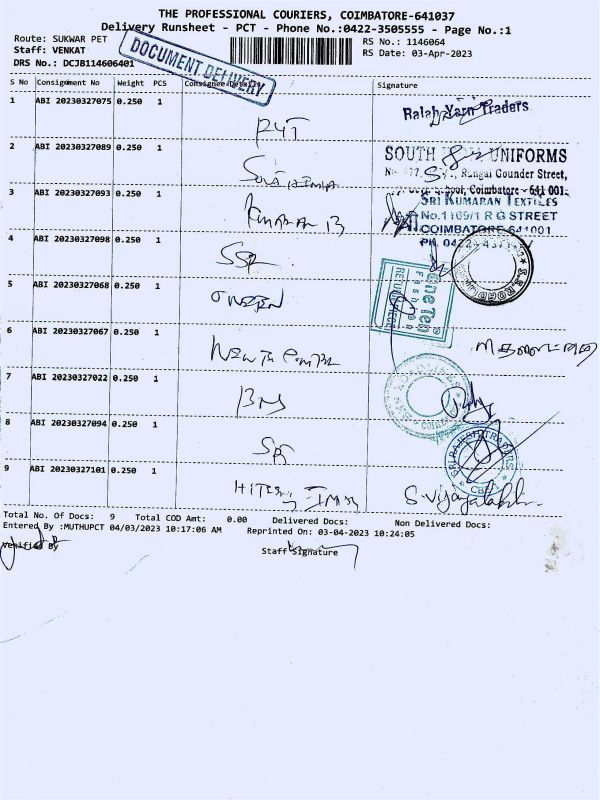 THE PROFESSIONAL COURIERS, COIMBATORE-641037
Delivery Runsheet - PCT - Phone No.:0422-3505555 - Page No.:1
Route: SUKWAR PET
RS No.: 1146064
Staff: VENKAT
RS Date: 03-Apr-2023
DRS No.: DCJB114606401
DOCUMENT DELIVERY
S No Consignment No Weight PCS Consignee Details Signature
1 ABI 20230327075 0.250 1
Ralah Yarn Traders
2 ABI 20230327089 0.250 1
SOUTH UNIFORMS
Rangai Gounder Street,
Coimbatore - 641 001.
3 ABI 20230327093 0.250 1
SRI KUMARAN TEXTILES
No.1169/1 R G STREET
COIMBATORE-641001
4 ABI 20230327098 0.250 1
SSR
5 ABI 20230327068 0.250 1
One Teh
Fashion
6 ABI 20230327067 0.250 1
7 ABI 20230327022 0.250 1
8 ABI 20230327094 0.250 1
SRI RAJESH TRADERS
CBE
9 ABI 20230327101 0.250 1
S. Vijayalakshmi
Total No. Of Docs: 9 Total COD Amt: 0.00 Delivered Docs: Non Delivered Docs:
Entered By :MUTHUPCT 04/03/2023 10:17:06 AM Reprinted On: 03-04-2023 10:24:05
Verified By
Staff Signature